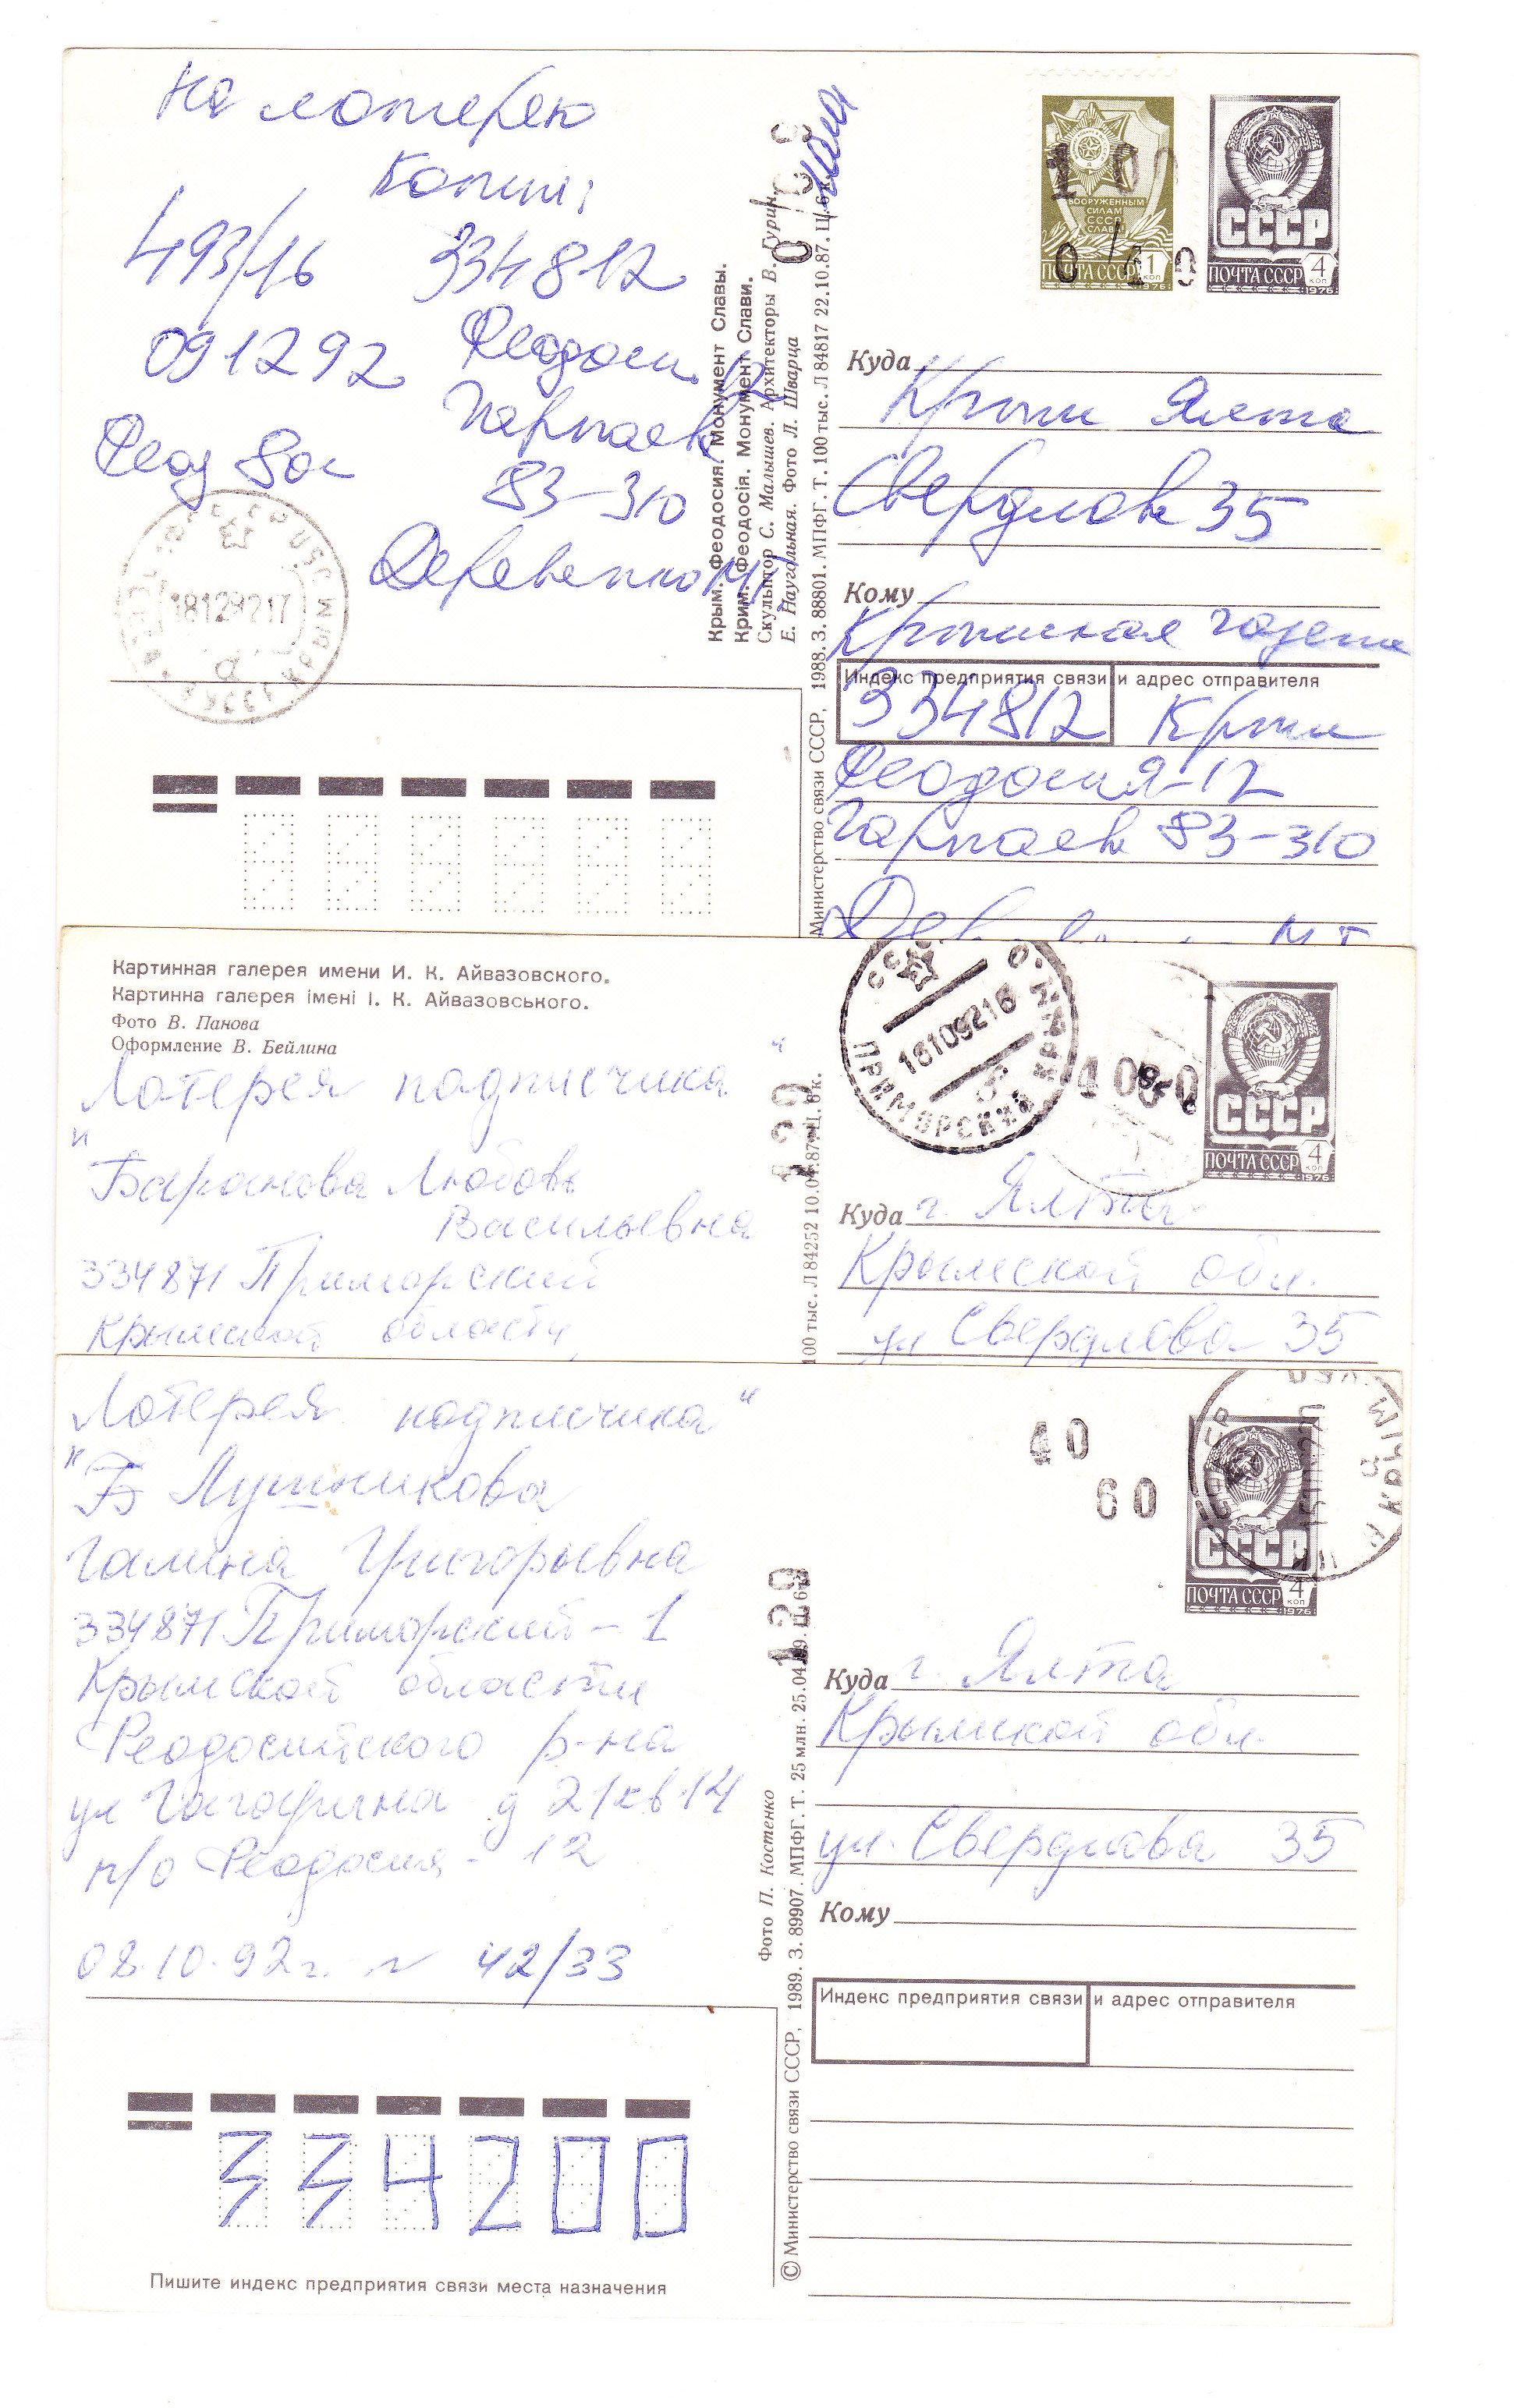 На лотерею
Копии:
493/16 334812
091292 Феодосия 12
Гарнаев
Феод
83-310
Деревенко МТ
181292 17
Крым. Феодосия. Монумент Славы.
Крим. Феодосія. Монумент Слави.
Скульптор С. Малышев. Архитекторы В. Гурин,
Е. Наугольная. Фото Л. Шварца
Министерство связи СССР, 1988. З. 88801. МПФГ. Т. 100 тыс. Л 84817 22.10.87. Ц. 6 к.
ВООРУЖЕННЫМ
СИЛАМ
СССР
СЛАВА!
ПОЧТА СССР 1 КОП
1976
СССР
ПОЧТА СССР 4 КОП
1976
Куда
Крым Ялта
Свердлова 35
Кому
Крымская газета
Индекс предприятия связи и адрес отправителя
334812 Крым
Феодосия-12
Гарнаева 83-310
МТ
Картинная галерея имени И. К. Айвазовского.
Картинна галерея імені І. К. Айвазовського.
Фото В. Панова
Оформление В. Бейлина
Лотерея подписчика"
"Баранова Любовь
Васильевна
334871 Приморский
Крымской области,
100 тыс. Л 84252 10.04.87. Ц. 6 к.
129
СССР
ПРИМОРСКИЙ КРЫМ. О.
181092 16
СССР
ПОЧТА СССР 4 КОП
1976
Куда г. Ялта
Крымской обл.
ул Свердлова 35
Лотерея подписчика"
"Б Лушникова
Галина Григорьевна
334871 Приморский - 1
Крымской области
Феодосийского р-на
ул Гагарина д 21 кв 14
п/о Феодосия - 12
08.10.92г. N 42/33
334200
Пишите индекс предприятия связи места назначения
Фото П. Костенко
© Министерство связи СССР, 1989. З. 89907. МПФГ. Т. 25 млн. 25.04.89. Ц. 6 к.
129
40
60
СССР
ПОЧТА СССР 4 КОП
1976
Куда г. Ялта
Крымской обл.
ул. Свердлова 35
Кому
Индекс предприятия связи и адрес отправителя